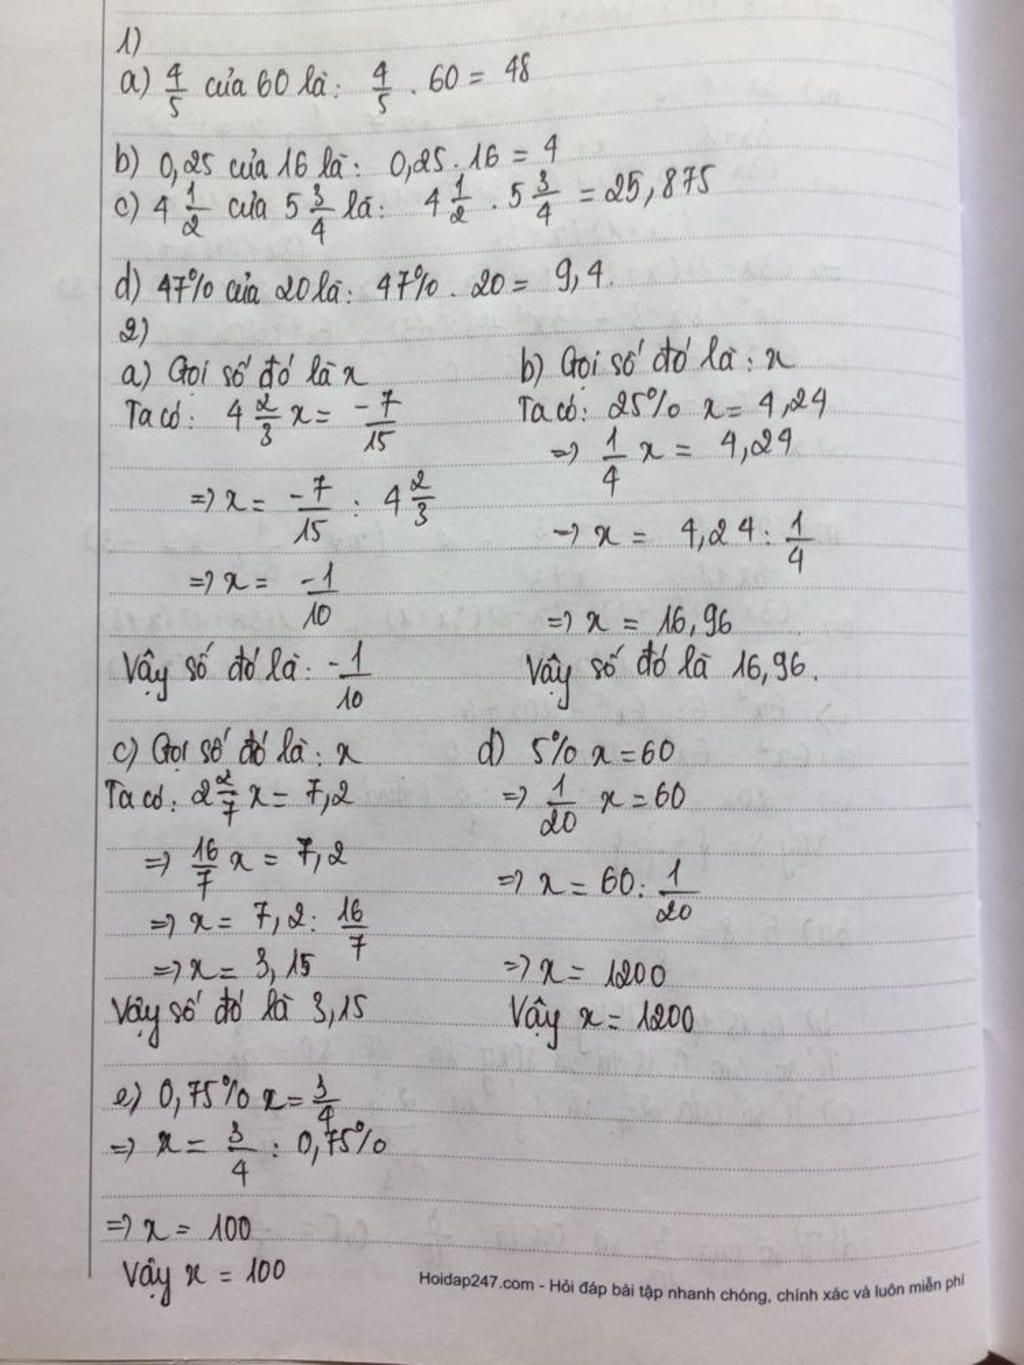 1)
a) 4/5 của 60 là: 4/5 . 60 = 48
b) 0,25 của 16 là: 0,25 . 16 = 4
c) 4 1/2 của 5 3/4 là: 4 1/2 . 5 3/4 = 25,875
d) 47% của 20 là: 47% . 20 = 9,4.
2)
a) Gọi số đó là x
Ta có: 4 2/3 x = -7/15
=> x = -7/15 : 4 2/3
=> x = -1/10
Vậy số đó là: -1/10
b) Gọi số đó là: x
Ta có: 25% x = 4,24
=> 1/4 x = 4,24
=> x = 4,24 : 1/4
=> x = 16,96
Vậy số đó là 16,96.
c) Gọi số đó là: x
Ta có: 2 2/7 x = 7,2
=> 16/7 x = 7,2
=> x = 7,2 : 16/7
=> x = 3,15
Vậy số đó là 3,15
d) 5% x = 60
=> 1/20 x = 60
=> x = 60 : 1/20
=> x = 1200
Vậy x = 1200
e) 0,75% x = 3/4
=> x = 3/4 : 0,75%
=> x = 100
Vậy x = 100
Hoidap247.com - Hỏi đáp bài tập nhanh chóng, chính xác và luôn miễn phí